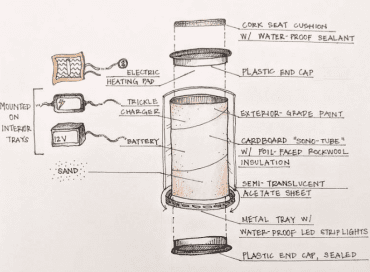 CORK SEAT CUSHION
W/ WATER-PROOF SEALANT
ELECTRIC
HEATING PAD
PLASTIC END CAP
MOUNTED
ON
INTERIOR
TRAYS
TRICKLE
CHARGER
EXTERIOR-GRADE PAINT
12V
BATTERY
CARDBOARD "SONO-TUBE"
W/ FOIL-FACED ROCKWOOL
INSULATION
SAND
SEMI-TRANSLUCENT
ACETATE SHEET
METAL TRAY W/
WATER-PROOF LED STRIPLIGHTS
PLASTIC END CAP, SEALED